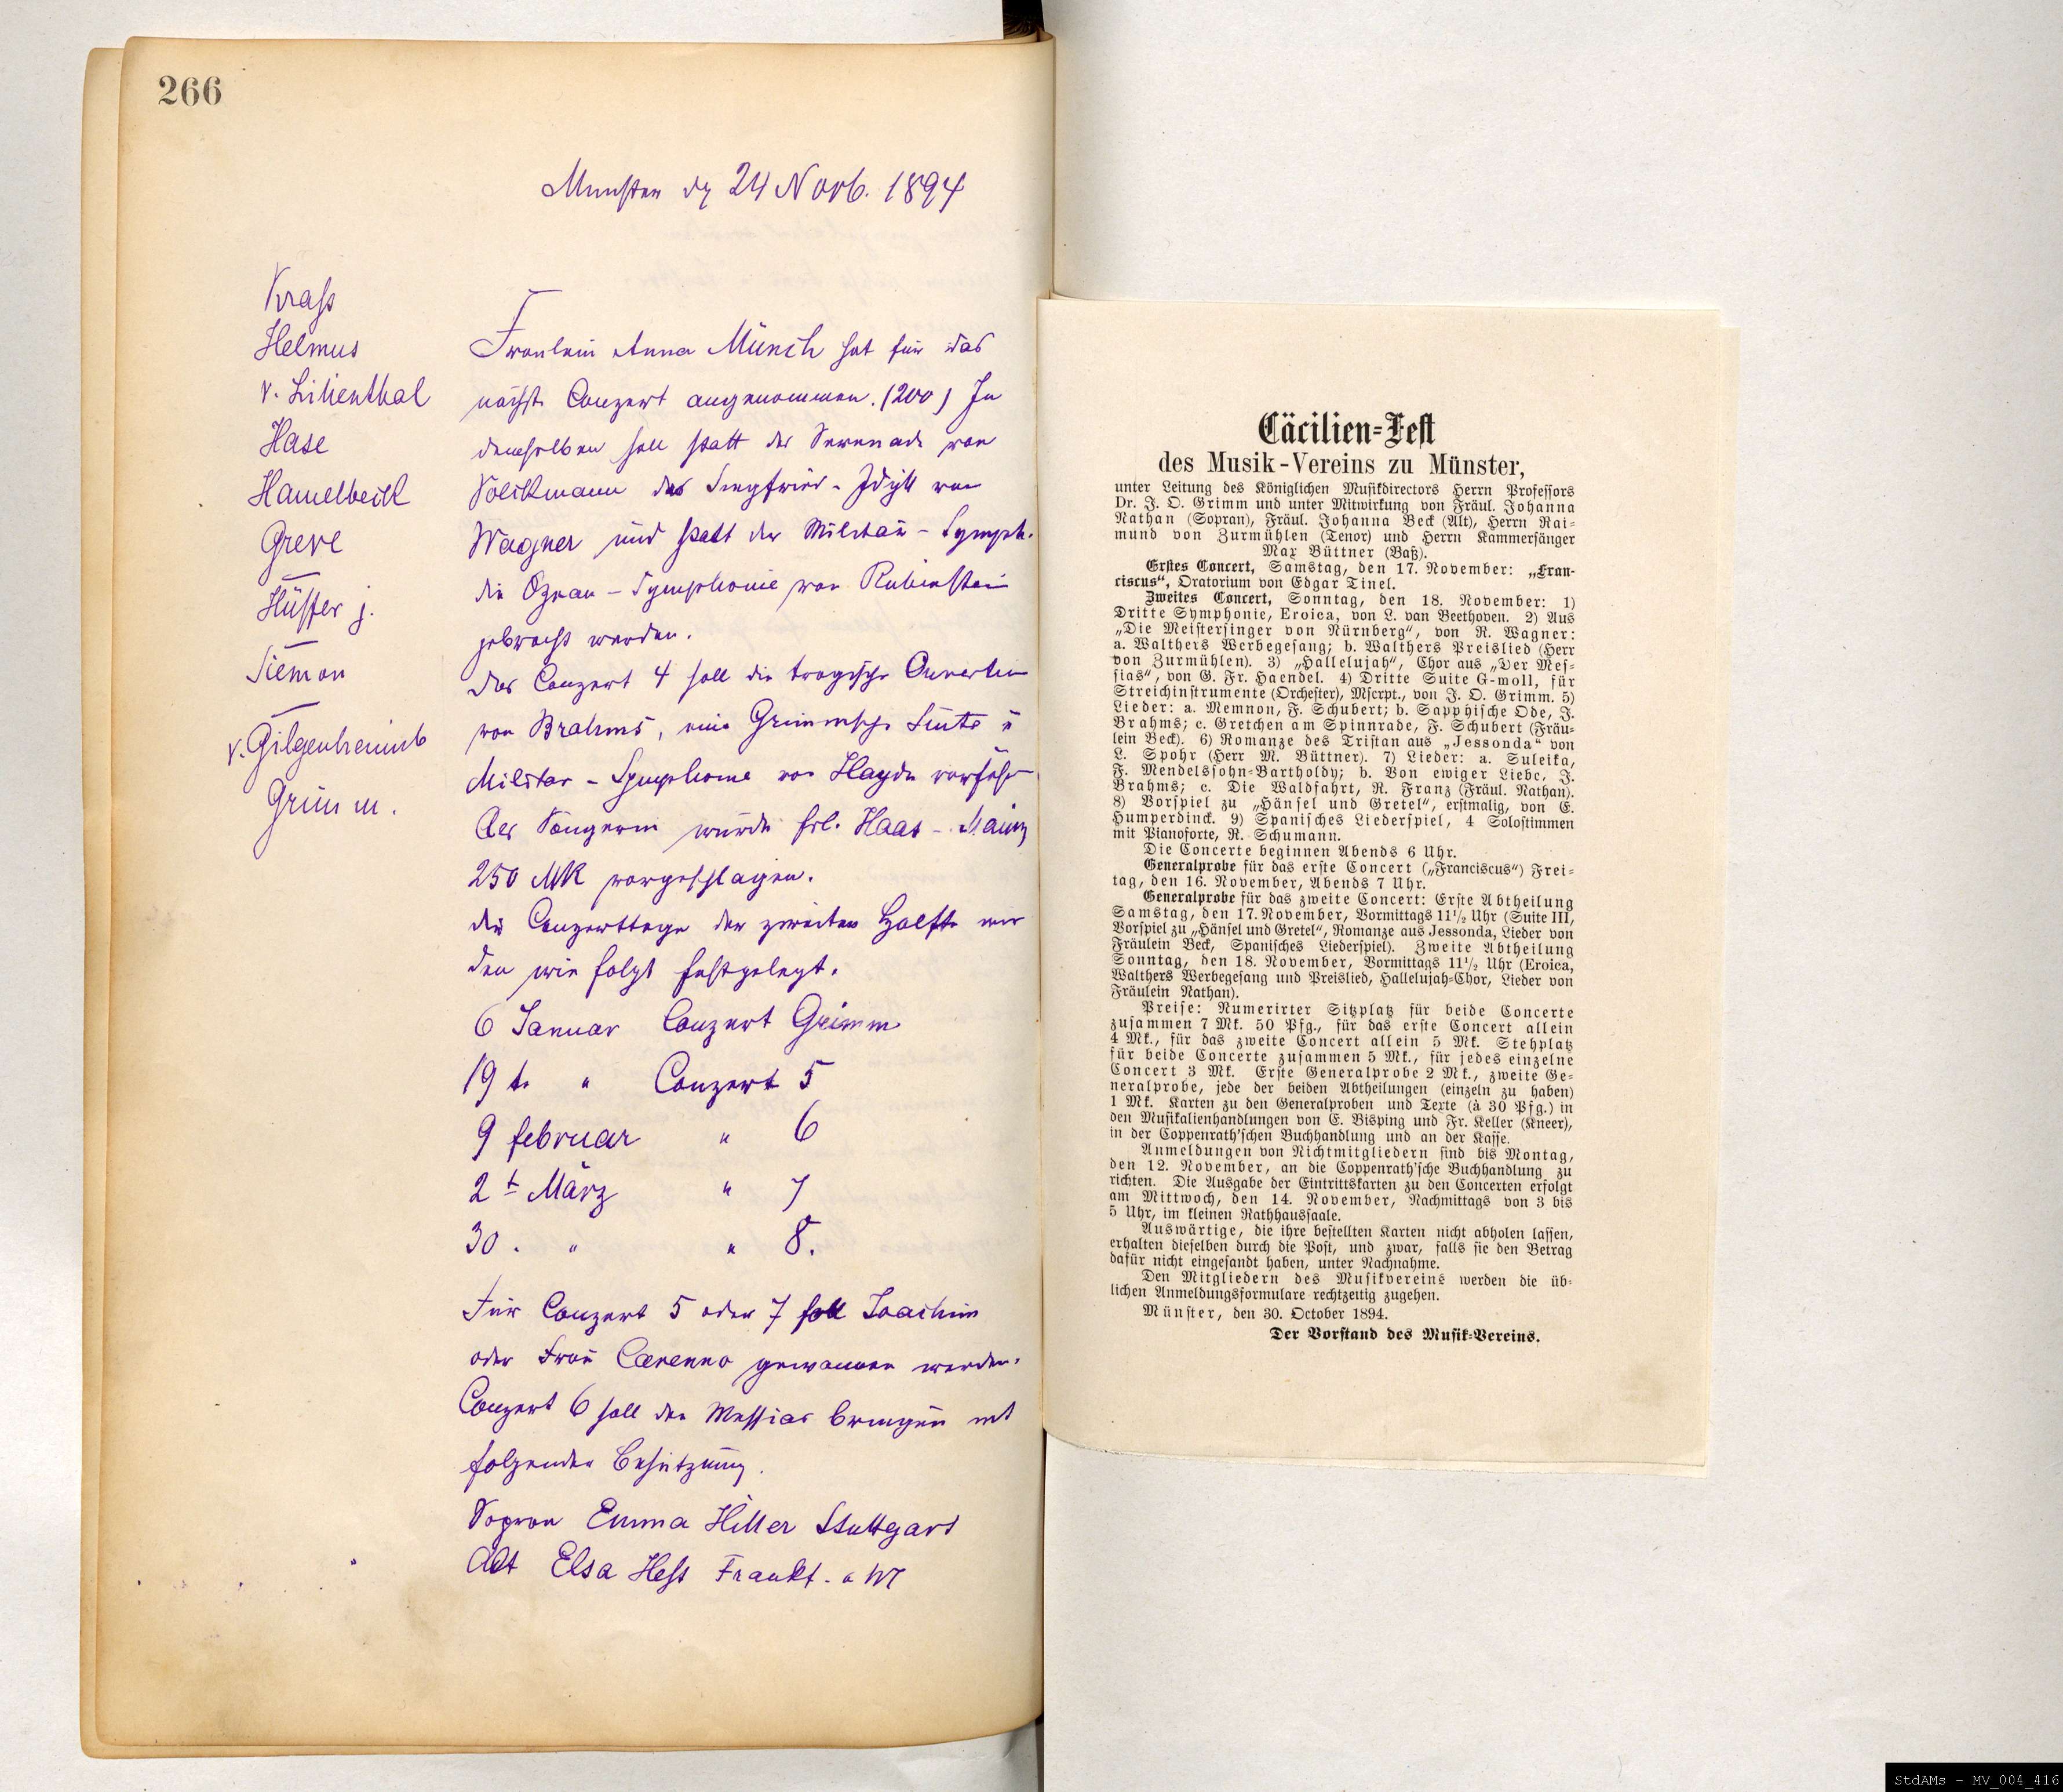 266
Munster d 24 Novb. 1894
Krass
Helmus
v. Lilienthal
Hase
Hamelbeck
Greve
Hüffer j.
Siemon
v. Gilgenheimb
Grimm.
Fraulein Anna Münch hat für das
nächste Conzert angenommen. (200) In
demselben soll statt der Serenade von
Volckmann das Siegfried-Idyll von
Wagner und statt der Militär-Symph.
die Ozean-Symphonie von Rubinstein
gebracht werden.
Das Conzert 4 soll die tragische Ouverture
von Brahms, eine Grimmsche Suite u
Militar-Symphonie von Haydn
Als Sängerin wurde Frl. Haas-Mainz
250 MK vorgeschlagen.
die Conzerttage der zweiten Halfte wer
den wie folgt festgelegt.
6 Januar Conzert Grimm
19 t. " Conzert 5
9 februar " 6
2 t März " 7
30. " " 8.
Für Conzert 5 oder 7 soll Joachim
oder Frau Carenno gewonnen werden.
Conzert 6 soll den Messias bringen mit
folgender Besetzung.
Sopran Emma Hiller Stuttgart
Alt Elsa Hess Frankf. a M
Cäcilien-Fest
des Musik-Vereins zu Münster,
unter Leitung des Königlichen Musikdirectors Herrn Professors
Dr. J. O. Grimm und unter Mitwirkung von Fräul. Johanna
Nathan (Sopran), Fräul. Johanna Beck (Alt), Herrn Rai-
mund von Zurmühlen (Tenor) und Herrn Kammersänger
Max Büttner (Baß).
Erstes Concert, Samstag, den 17. November: „Fran-
ciscus“, Oratorium von Edgar Tinel.
Zweites Concert, Sonntag, den 18. November: 1)
Dritte Symphonie, Eroica, von L. van Beethoven. 2) Aus
„Die Meistersinger von Nürnberg“, von R. Wagner:
a. Walthers Werbegesang; b. Walthers Preislied (Herr
von Zurmühlen). 3) „Hallelujah“, Chor aus „Der Mes-
sias“, von G. Fr. Haendel. 4) Dritte Suite G-moll, für
Streichinstrumente (Orchester), Mscrpt., von J. O. Grimm. 5)
Lieder: a. Memnon, F. Schubert; b. Sapphische Ode, J.
Brahms; c. Gretchen am Spinnrade, F. Schubert (Fräu-
lein Beck). 6) Romanze des Tristan aus „Jessonda“ von
L. Spohr (Herr M. Büttner). 7) Lieder: a. Suleika,
F. Mendelssohn-Bartholdy; b. Von ewiger Liebe, J.
Brahms; c. Die Waldfahrt, R. Franz (Fräul. Nathan).
8) Vorspiel zu „Hänsel und Gretel“, erstmalig, von E.
Humperdinck. 9) Spanisches Liederspiel, 4 Solostimmen
mit Pianoforte, R. Schumann.
Die Concerte beginnen Abends 6 Uhr.
Generalprobe für das erste Concert („Franciscus“) Frei-
tag, den 16. November, Abends 7 Uhr.
Generalprobe für das zweite Concert: Erste Abtheilung
Samstag, den 17. November, Vormittags 11 1/2 Uhr (Suite III,
Vorspiel zu „Hänsel und Gretel“, Romanze aus Jessonda, Lieder von
Fräulein Beck, Spanisches Liederspiel). Zweite Abtheilung
Sonntag, den 18. November, Vormittags 11 1/2 Uhr (Eroica,
Walthers Werbegesang und Preislied, Hallelujah-Chor, Lieder von
Fräulein Nathan).
Preise: Numerirter Sitzplatz für beide Concerte
zusammen 7 Mk. 50 Pfg., für das erste Concert allein
4 Mk., für das zweite Concert allein 5 Mk. Stehplatz
für beide Concerte zusammen 5 Mk., für jedes einzelne
Concert 3 Mk. Erste Generalprobe 2 Mk., zweite Ge-
neralprobe, jede der beiden Abtheilungen (einzeln zu haben)
1 Mk. Karten zu den Generalproben und Texte (à 30 Pfg.) in
den Musikalienhandlungen von E. Bisping und Fr. Keller (Kneer),
in der Coppenrath'schen Buchhandlung und an der Kasse.
Anmeldungen von Nichtmitgliedern sind bis Montag,
den 12. November, an die Coppenrath'sche Buchhandlung zu
richten. Die Ausgabe der Eintrittskarten zu den Concerten erfolgt
am Mittwoch, den 14. November, Nachmittags von 3 bis
5 Uhr, im kleinen Rathhaussaale.
Auswärtige, die ihre bestellten Karten nicht abholen lassen,
erhalten dieselben durch die Post, und zwar, falls sie den Betrag
dafür nicht eingesandt haben, unter Nachnahme.
Den Mitgliedern des Musikvereins werden die üb-
lichen Anmeldungsformulare rechtzeitig zugehen.
Münster, den 30. October 1894.
Der Vorstand des Musik-Vereins.
StdAMs - MV_004_416